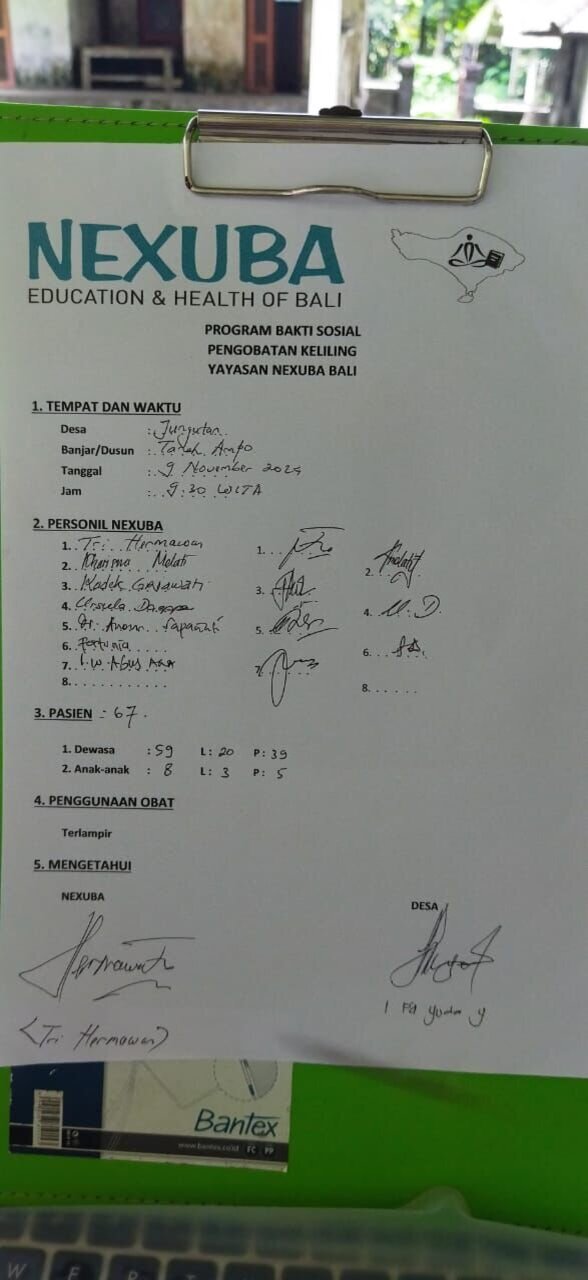 NEXUBA
EDUCATION & HEALTH OF BALI
PROGRAM BAKTI SOSIAL
PENGOBATAN KELILING
YAYASAN NEXUBA BALI
1. TEMPAT DAN WAKTU
Desa : Jungutan
Banjar/Dusun : Tanah Ampo
Tanggal : 9 November 2024
Jam : 9.30 WITA
2. PERSONIL NEXUBA
1. Tri Hermawan 1.
2. Kharisma Melati 2.
3. Kadek 3.
4. Ursula 4. U.D.
5. 5.
6. 6.
7. I W Agus 7.
8. 8.
3. PASIEN : 67.
1. Dewasa : 59 L : 20 P : 39
2. Anak-anak : 8 L : 3 P : 5
4. PENGGUNAAN OBAT
Terlampir
5. MENGETAHUI
NEXUBA
DESA
Hermawan
I yuda y
(Tri Hermawan)
Bantex
www.bantex.co.id FC PP
W E R T